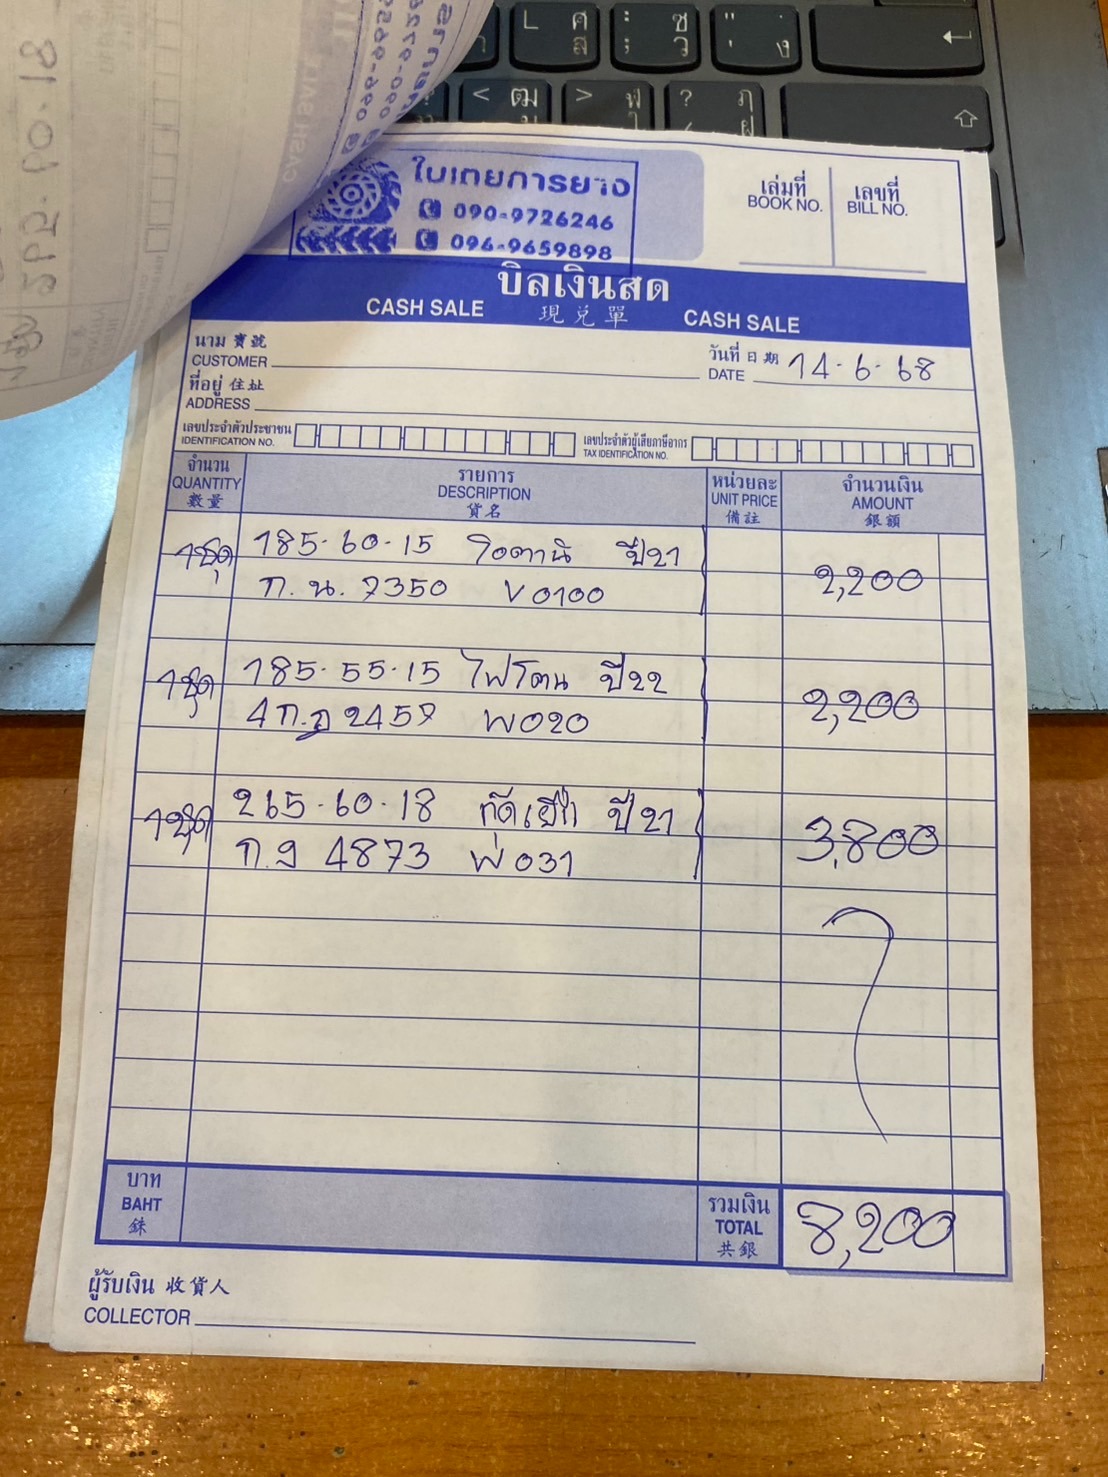 ใบเตยการยาง
090-9726246
096-9659898
เล่มที่
BOOK NO.
เลขที่
BILL NO.
บิลเงินสด
CASH SALE 現兌單 CASH SALE
นาม 寶號
CUSTOMER
วันที่ 日期
DATE 14-6-68
ที่อยู่ 住址
ADDRESS
เลขประจำตัวประชาชน
IDENTIFICATION NO.
เลขประจำตัวผู้เสียภาษีอากร
TAX IDENTIFICATION NO.
จำนวน
QUANTITY
數量
รายการ
DESCRIPTION
貨名
หน่วยละ
UNIT PRICE
備註
จำนวนเงิน
AMOUNT
銀額
1ชุด 185-60-15 โอตานิ ปี21 2,200
ก.น. 7350 V0100
1ชุด 185-55-15 ไฟโตน ปี22 2,200
4ก.ฎ 2457 พ020
1ชุด 265-60-18 กู๊ดเยีย ปี21 3,800
ก.ง 4873 พ031
บาท
BAHT
銖
รวมเงิน
TOTAL
共銀
8,200
ผู้รับเงิน 收貨人
COLLECTOR